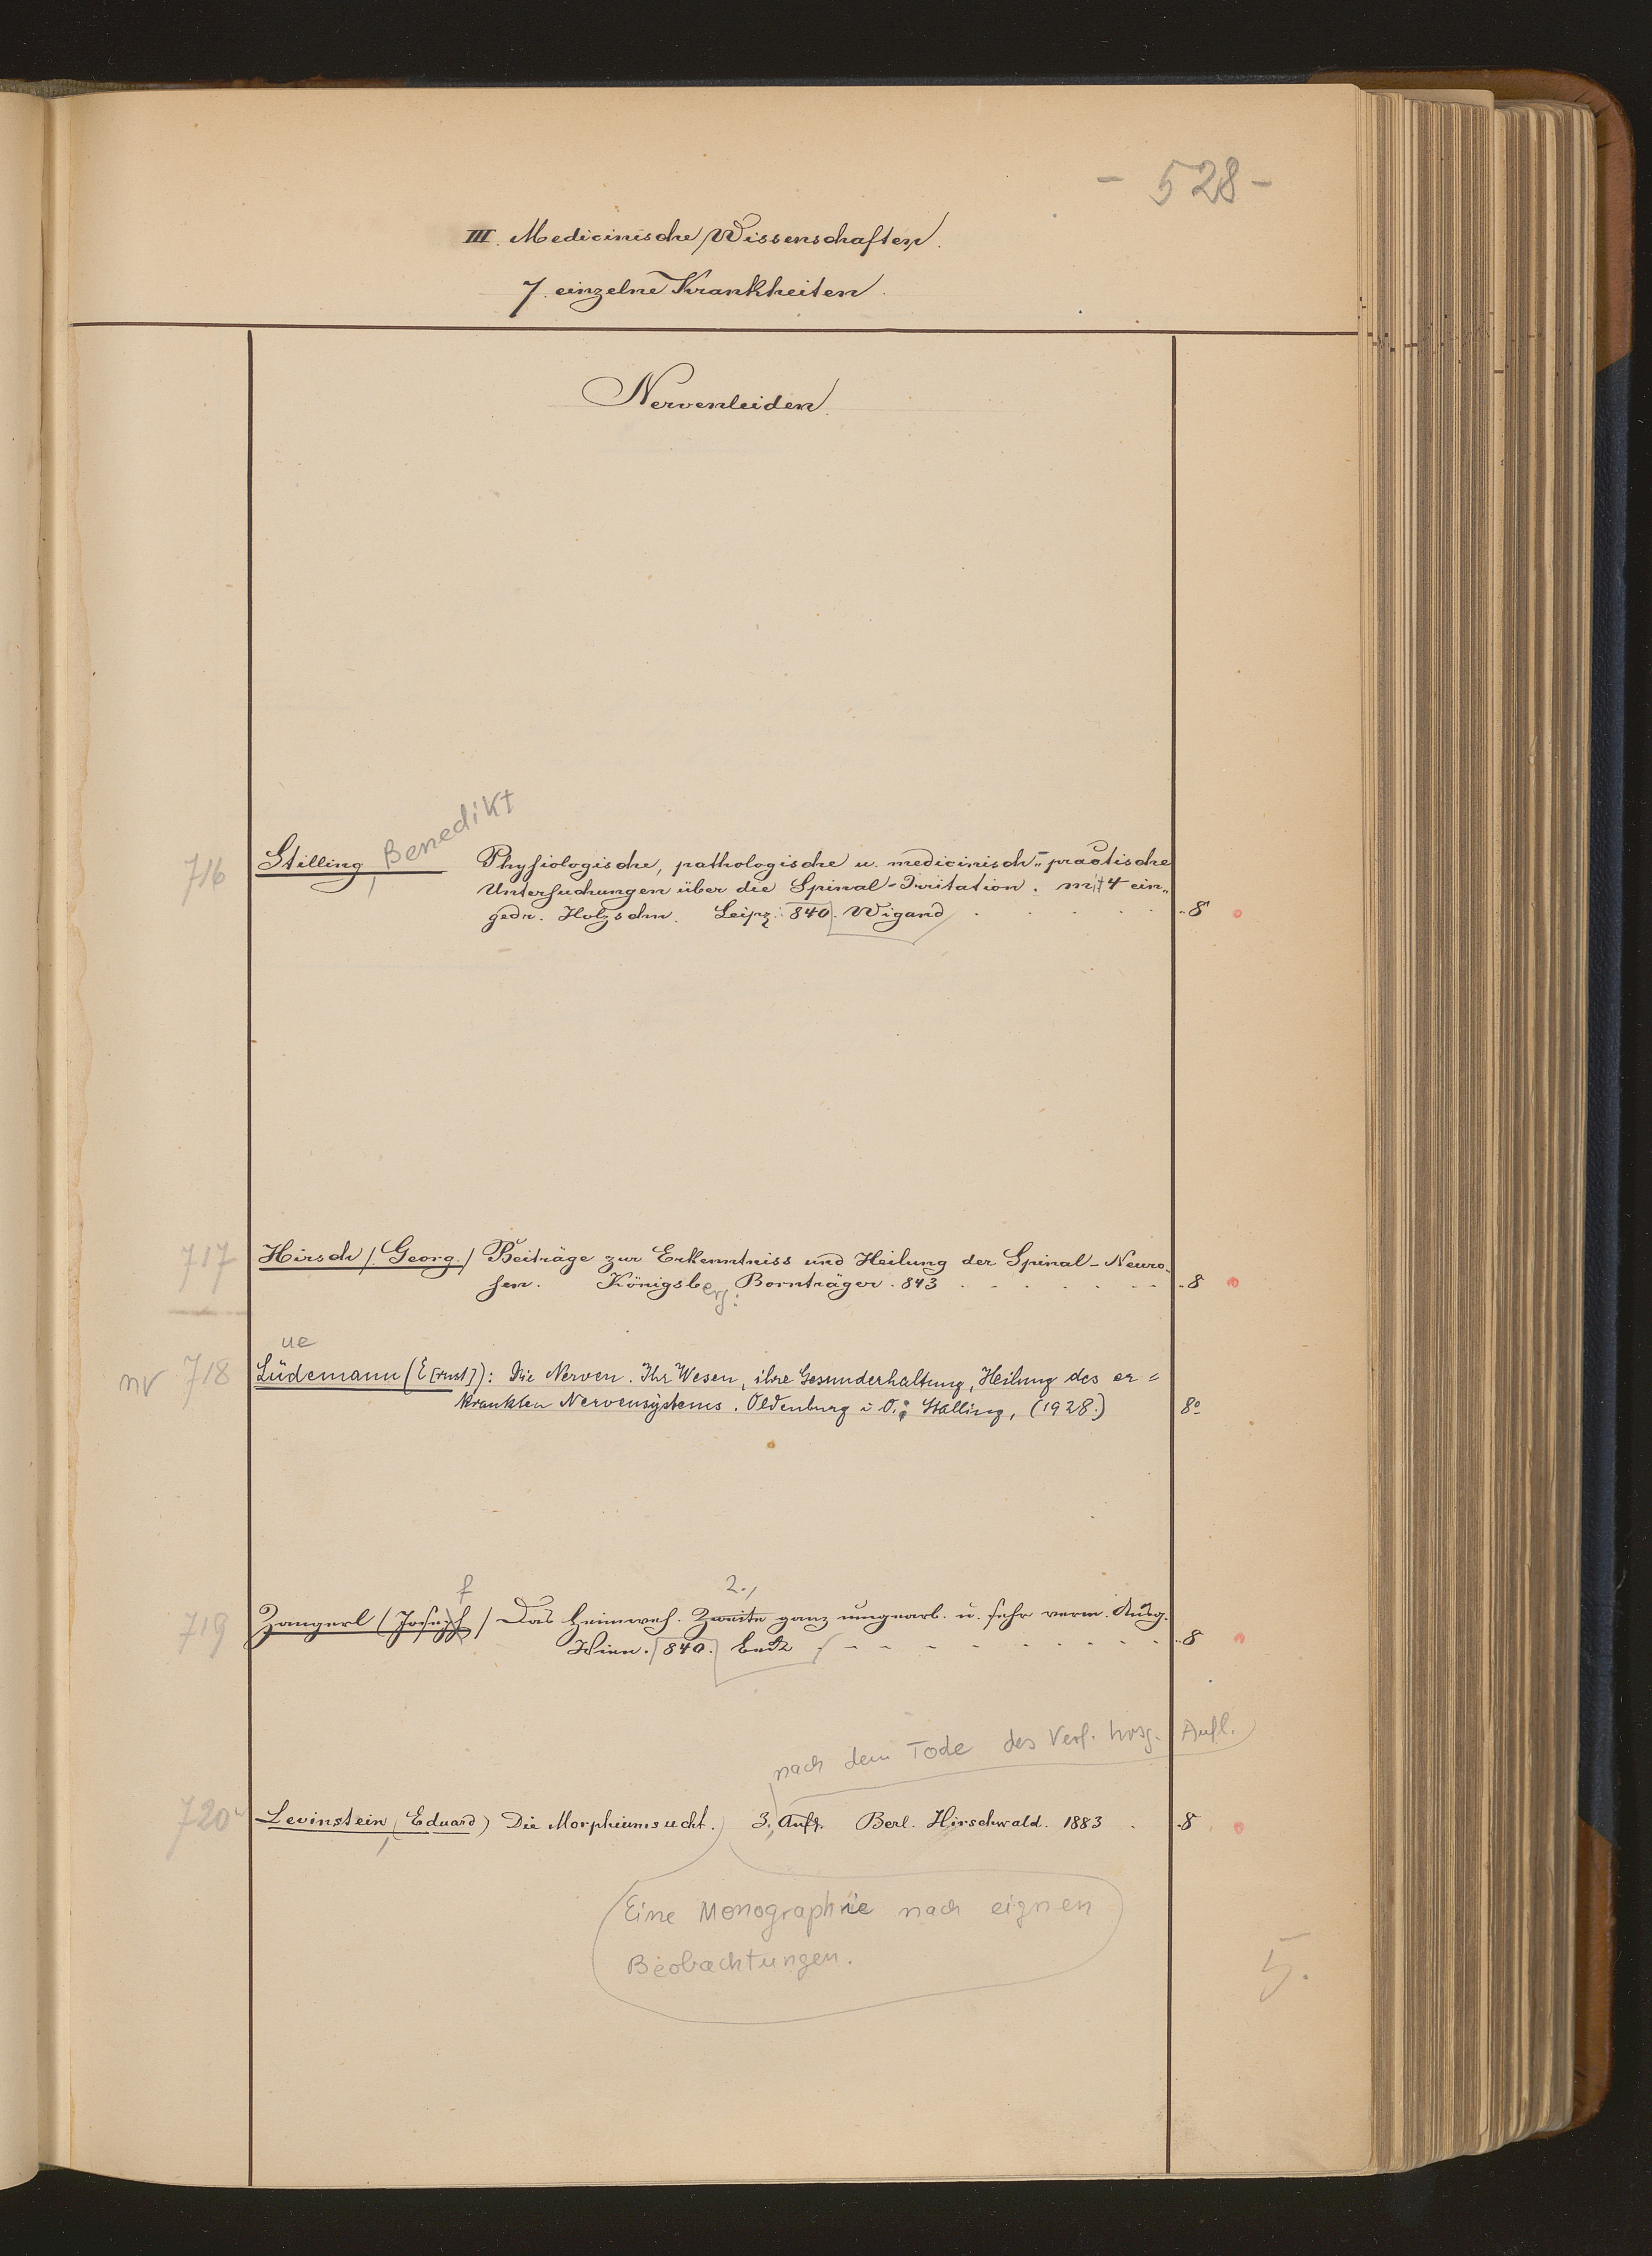 - 528 -
III. Medicinische Wissenschaften.
7. einzelne Krankheiten.
Nervenleiden.
716 Stilling, Benedikt Physiologische, pathologische u. medicinisch-practische
Untersuchungen über die Spinal-Irritation. mit 4 ein-
gedr. Holzschn. Leipz. 840. Wigand . . . . . 8
717 Hirsch / Georg. / Beiträge zur Erkenntniss und Heilung der Spinal-Neuro-
sen. Königsberg: Bornträger. 843 . . . . . . 8
ue
nv 718 Lüdemann (E[rnst]): Die Nerven. Ihr Wesen, ihre Gesunderhaltung, Heilung des er=
krankten Nervensystems. Oldenburg i O.: Stalling, (1928.) 8º
f 2.,
719 Zangerl (Joseph / Das Heimweh. Zweite ganz umgearb. u. sehr verm. Ausg.
Wien. 840. . . . . . . . 8
nach dem Tode des Verf. hrsg. Aufl.
720 Levinstein, (Eduard) Die Morphiumsucht. 3. Aufl. Berl. Hirschwald. 1883 . 8
Eine Monographie nach eignen
Beobachtungen.
5.